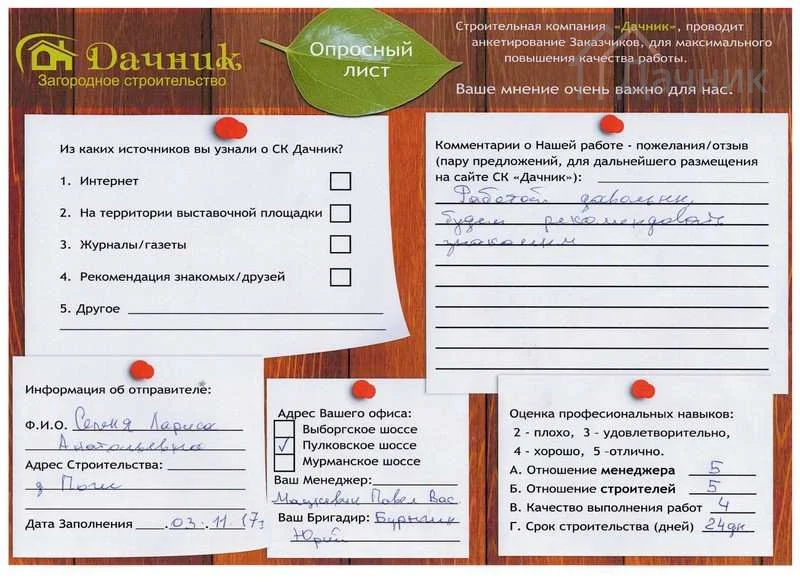 Дачник
Загородное строительство
Опросный
лист
Строительная компания «Дачник», проводит
анкетирование Заказчиков, для максимального
повышения качества работы.
Ваше мнение очень важно для нас.
Дачник
Из каких источников вы узнали о СК Дачник?
1. Интернет
2. На территории выставочной площадки
3. Журналы/газеты
4. Рекомендация знакомых/друзей
5. Другое
Комментарии о Нашей работе - пожелания/отзыв
(пару предложений, для дальнейшего размещения
на сайте СК «Дачник»):
Работой довольны,
будем рекомендовать
знакомым
Информация об отправителе:
Ф.И.О. Лариса
Анатольевна
Адрес Строительства:
д
Дата Заполнения 03.11.17г
Адрес Вашего офиса:
Выборгское шоссе
✓ Пулковское шоссе
Мурманское шоссе
Ваш Менеджер:
Павел Вас.
Ваш Бригадир:
Юрий
Оценка професиональных навыков:
2 - плохо, 3 - удовлетворительно,
4 - хорошо, 5 -отлично.
А. Отношение менеджера 5
Б. Отношение строителей 5
В. Качество выполнения работ 4
Г. Срок строительства (дней) 24дн